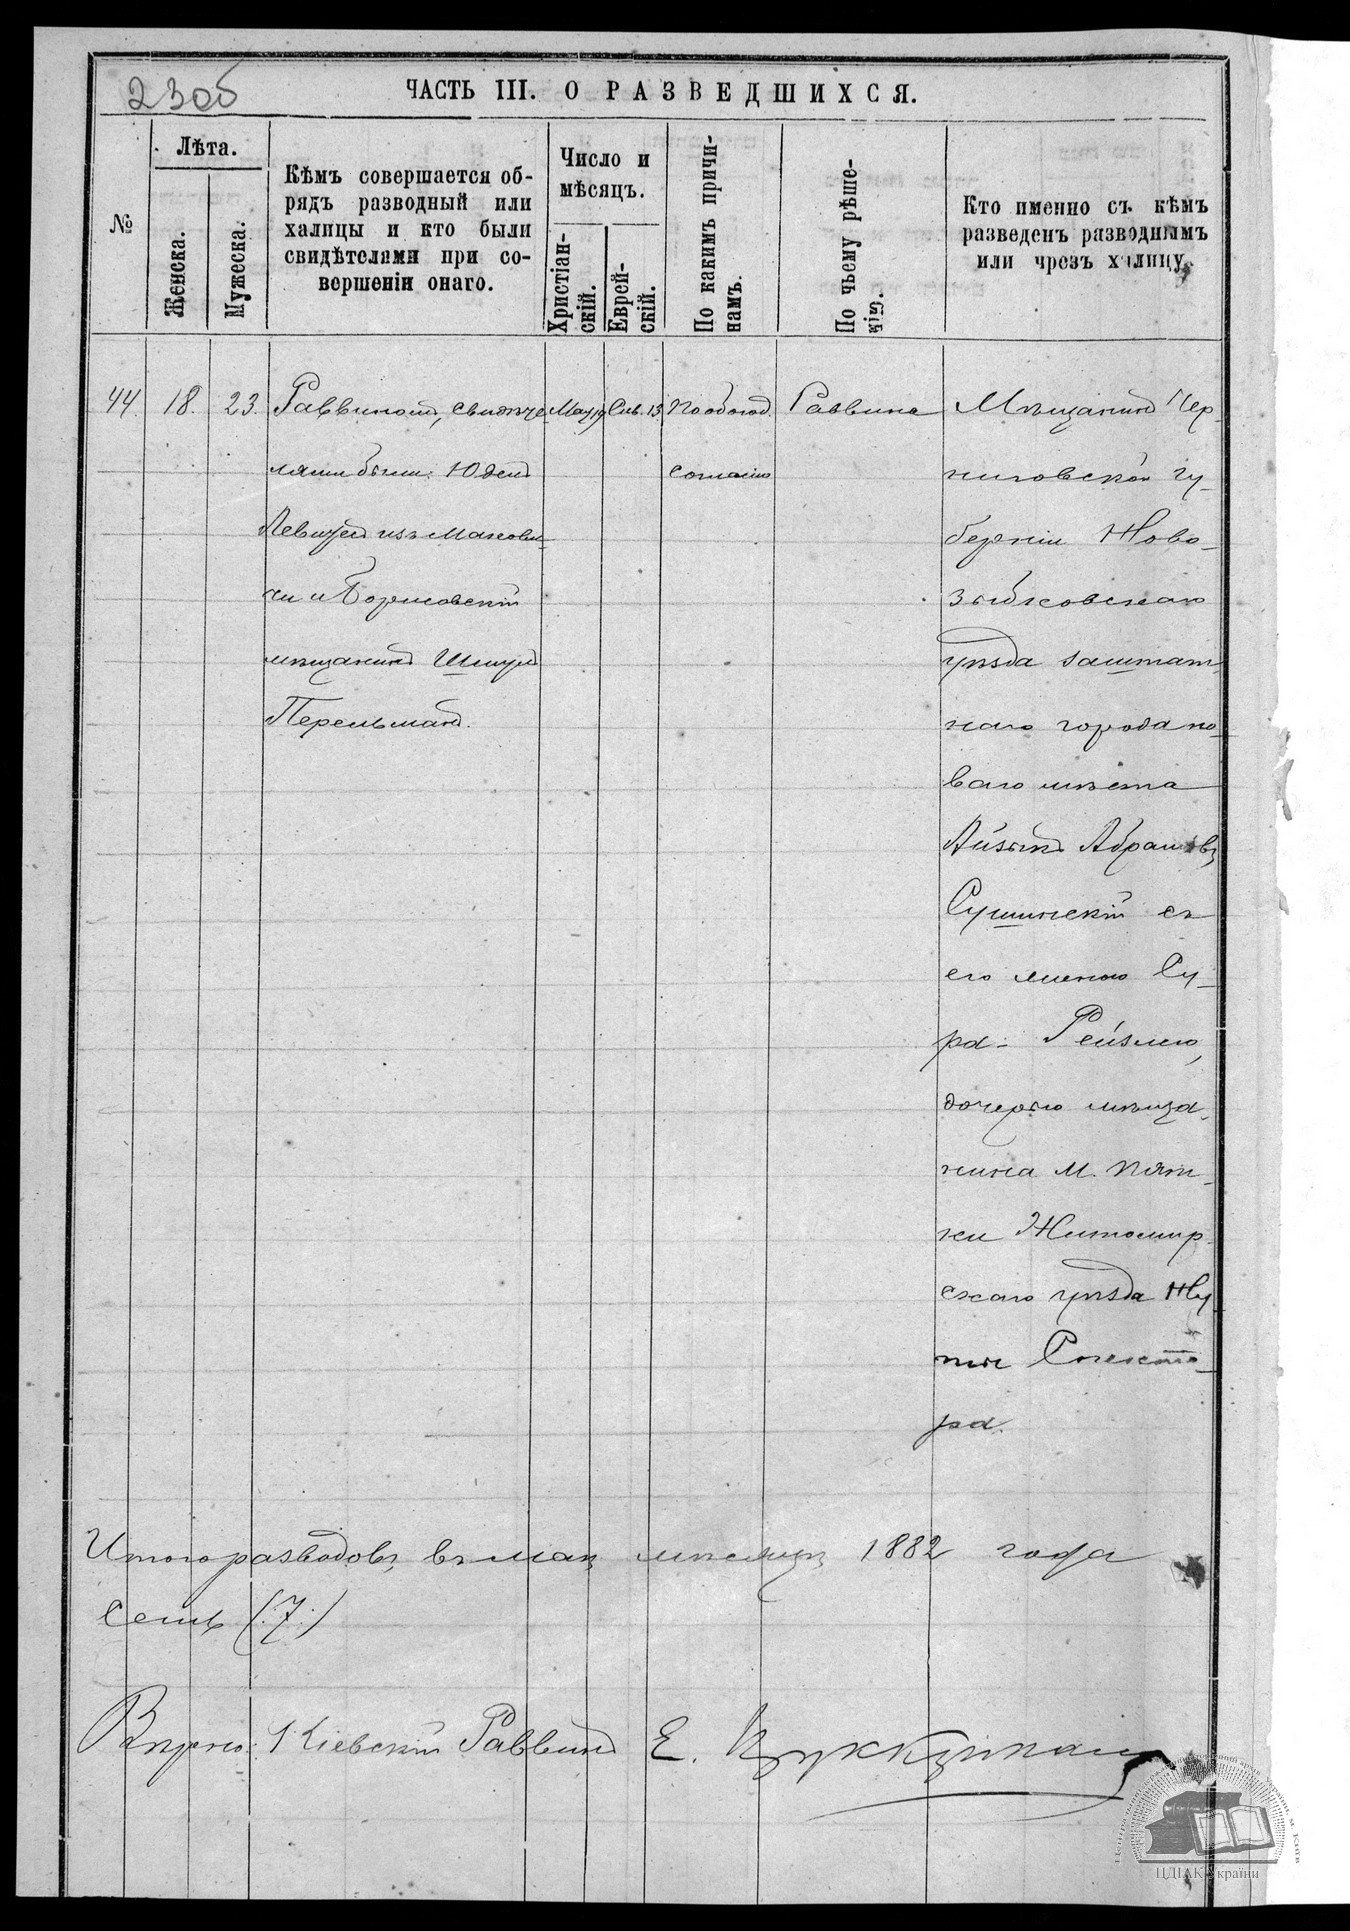 230б
ЧАСТЬ III. О РАЗВЕДШИХСЯ.
№
Лѣта.
Женска.
Мужеска.
Кѣмъ совершается об-
рядъ разводный или
халицы и кто были
свидѣтелями при со-
вершеніи онаго.
Число и
мѣсяцъ.
Христіан-
скій.
Еврей-
скій.
По какимъ причи-
намъ.
По чьему рѣше-
нію.
Кто именно съ кѣмъ
разведенъ разводнымъ
или чрезъ халицу.
44.
18.
23.
Раввиномъ, свидѣте-
лями были: Юдель
Левицъ изъ
и Борисовскій
мѣщанинъ Шмулъ
Перельманъ.
Мая 19
Сив. 13
По обоюд.
согласію
Раввина
Мѣщанинъ Чер-
ниговской гу-
берніи Ново-
зыбковскаго
уѣзда заштат-
наго города но-
ваго мѣста
Айзикъ Абрамовъ
Сушинскій съ
его женою Су-
ра-Рейзлею,
дочерью мѣща-
нина м. Пят-
ки Житомир-
скаго уѣзда Ну-
хима Спекто-
ра.
Итого разводовъ въ маѣ мѣсяцѣ 1882 года
семь (:7:)
Вѣрно: Кіевскій Раввинъ Е. Цуккерман
ЦДІАК України